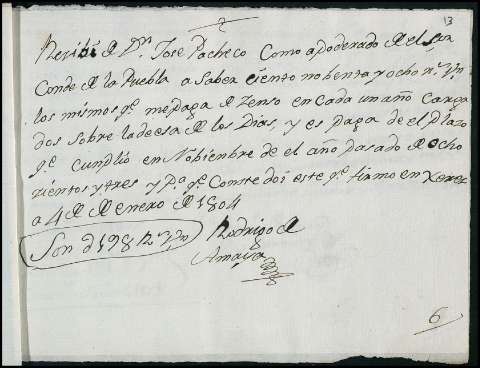 13
Recibi de Dn. Jose Pacheco Como apoderado de el Sor
Conde de la Puebla a Saber ciento nobenta y ocho rs. Vn
los mismos qe. me paga de Zenso en cada un año Carga
dos Sobre la deesa de los Dias, y es paga de el plazo
qe Cumplio en Nobiembre de el año pasado de ocho
zientos y tres y pa. qe. Conste doi este qe. firmo en Xerez
a 4 de enero de 1804
Son d 198 Rs. Vn Rodrigo de
Amaya
6